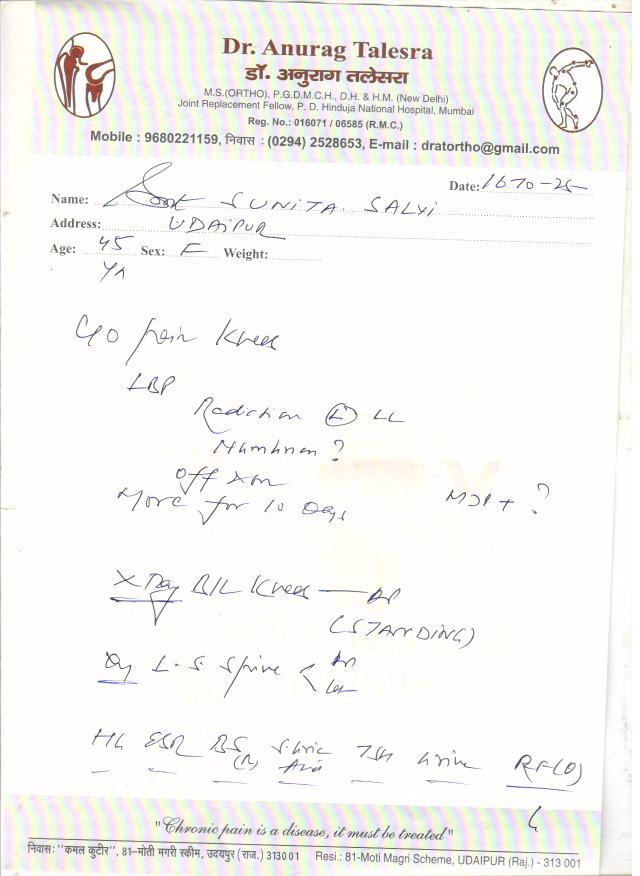 Dr. Anurag Talesra
डॉ. अनुराग तलेसरा
M.S.(ORTHO), P.G.D.M.C.H., D.H. & H.M. (New Delhi)
Joint Replacement Fellow, P. D. Hinduja National Hospital, Mumbai
Reg. No.: 016071 / 06585 (R.M.C.)
Mobile : 9680221159, निवास : (0294) 2528653, E-mail : dratortho@gmail.com
Date: 1670-25
Name: Smt SUNITA SALVI
Address: UDAIPUR
Age: 45 Yr Sex: F Weight:
C/o pain Knees
LBP
Radiation (L) LL
Numbness ?
Off &on
More for 10 Days
X Ray B/L Knees — AP
(STANDING)
L-S Spine < AP
Lat
Hb ESR BS (R) S. Uric Acid TSH Urine RF(Q)
"Chronic pain is a disease, it must be treated"
निवास: "कमल कुटीर", 81-मोती मगरी स्कीम, उदयपुर (राज.) 313001 Resi.: 81-Moti Magri Scheme, UDAIPUR (Raj.) - 313 001